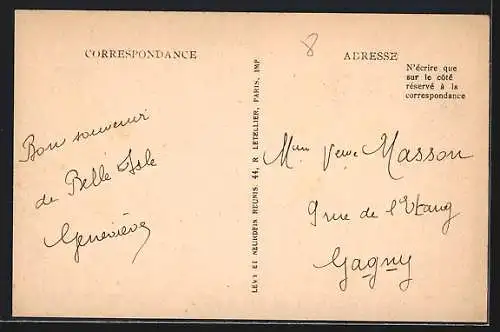 CORRESPONDANCE
Bon souvenir
de Belle Isle
Geneviève
LEVY ET NEURDEIN REUNIS, 44, R LETELLIER, PARIS, IMP
8
ADRESSE
N'écrire que
sur le côté
réservé à la
correspondance
Mme Veuve Masson
9 rue de l'Etang
Gagny